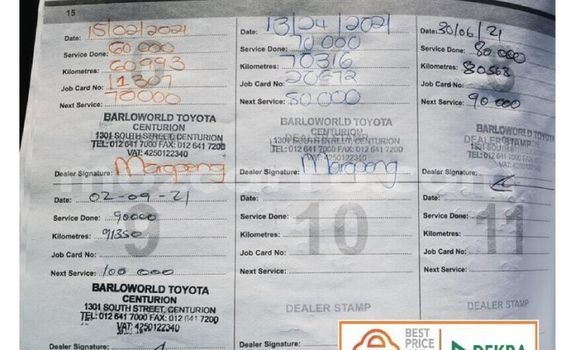 15
Date: 15/02/2021
Service Done: 60 000
Kilometres: 60993
Job Card No: 11307
Next Service: 70000
BARLOWORLD TOYOTA
CENTURION
1301 SOUTH STREET, CENTURION
TEL: 012 641 7000 FAX: 012 641 7200
VAT: 4250122340
Dealer Signature:
Date:
Service Done: 70 000
Kilometres: 70316
Job Card No: 20672
Next Service: 80000
BARLOWORLD TOYOTA
CENTURION
DEALER STAMP
1301 SOUTH STREET, CENTURION
TEL: 012 641 7000 FAX: 012 641 7200
VAT: 4250122340
Dealer Signature:
Date: 30/06/21
Service Done: 80 000
Kilometres: 80568
Job Card No:
Next Service: 90 000
BARLOWORLD TOYOTA
CENTURION
DEALER STAMP
1301 SOUTH STREET, CENTURION
TEL: 012 641 7000 FAX: 012 641 7200
VAT: 4250122340
Dealer Signature:
9
Date: 02-09-21
Service Done: 90000
Kilometres: 91350
Job Card No:
Next Service: 100 000
BARLOWORLD TOYOTA
CENTURION
1301 SOUTH STREET, CENTURION
TEL: 012 641 7000 FAX: 012 641 7200
VAT: 4250122340
Dealer Signature:
10
Date:
Service Done:
Kilometres:
Job Card No:
Next Service:
DEALER STAMP
11
Date:
Service Done:
Kilometres:
Job Card No:
Next Service:
DEALER STAMP
BEST
PRICE
DEKRA